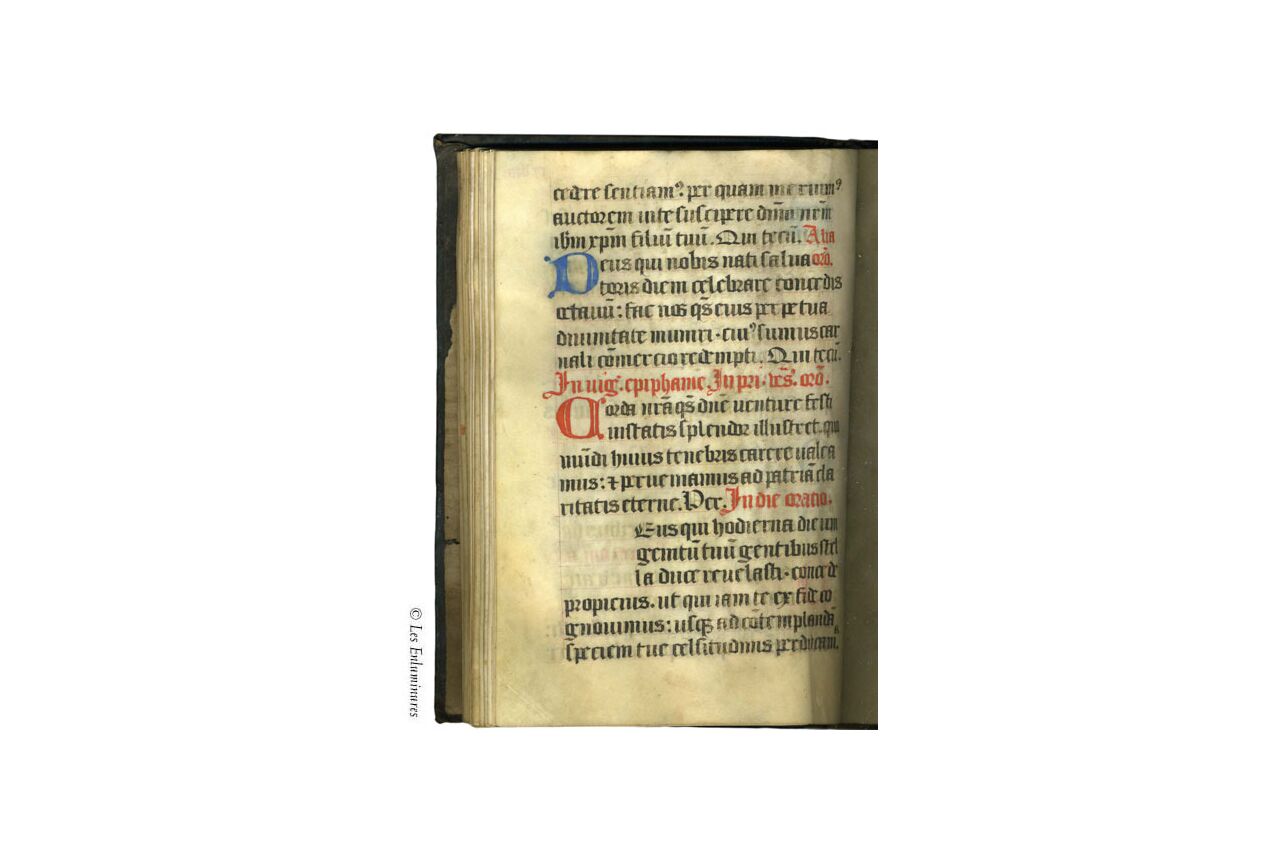 cedere sentiam⁹. per quam meruim⁹
auctorem uite suscipere dn̄m nr̄m
ihm xp̄m filiū tuū. Qui tecū. Alia
Deus qui nobis nati salua orō.
toris diem celebrare concedis
octauū: fac nos qs̄ eius perpetua
diuinitate muniri. cui⁹ sumus car
nali cōmercio redempti. Qui tecū.
In uig. epiphanie. In pri. ves̄. orō.
Corda nr̄a qs̄ dn̄e uenture festi
uitatis splendor illustret. quo
mūdi huius tenebris carere ualea
mus: ⁊ perueniamus ad patriā cla
ritatis eterne. Per. In die oratio.
Eus qui hodierna die uni
genitū tuū gentibus stel
la duce reuelasti. concede
propicius. ut qui iam te ex fide co
gnouimus: usqꝫ ad cōtemplandā
speciem tue celsitudinis perducam.
© Les Enluminures